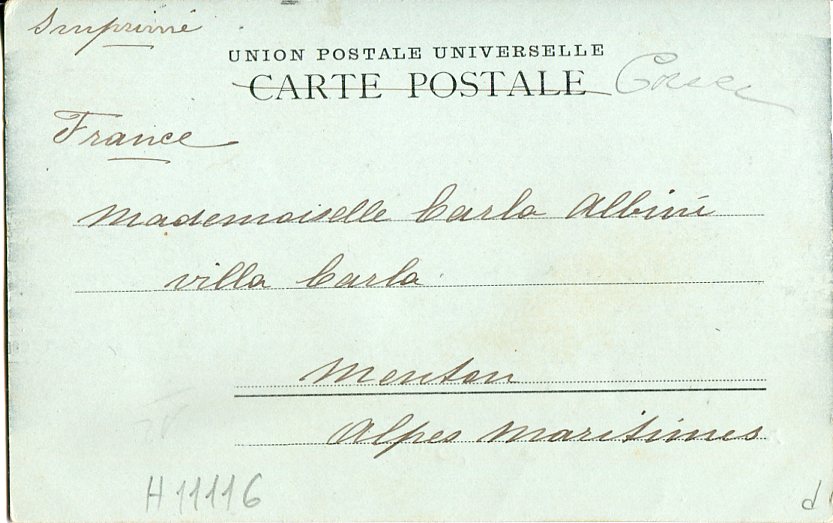 Imprimé
UNION POSTALE UNIVERSELLE
CARTE POSTALE
France
Mademoiselle Carla Albini
villa Carla
Menton
Alpes Maritimes
H 11116
d